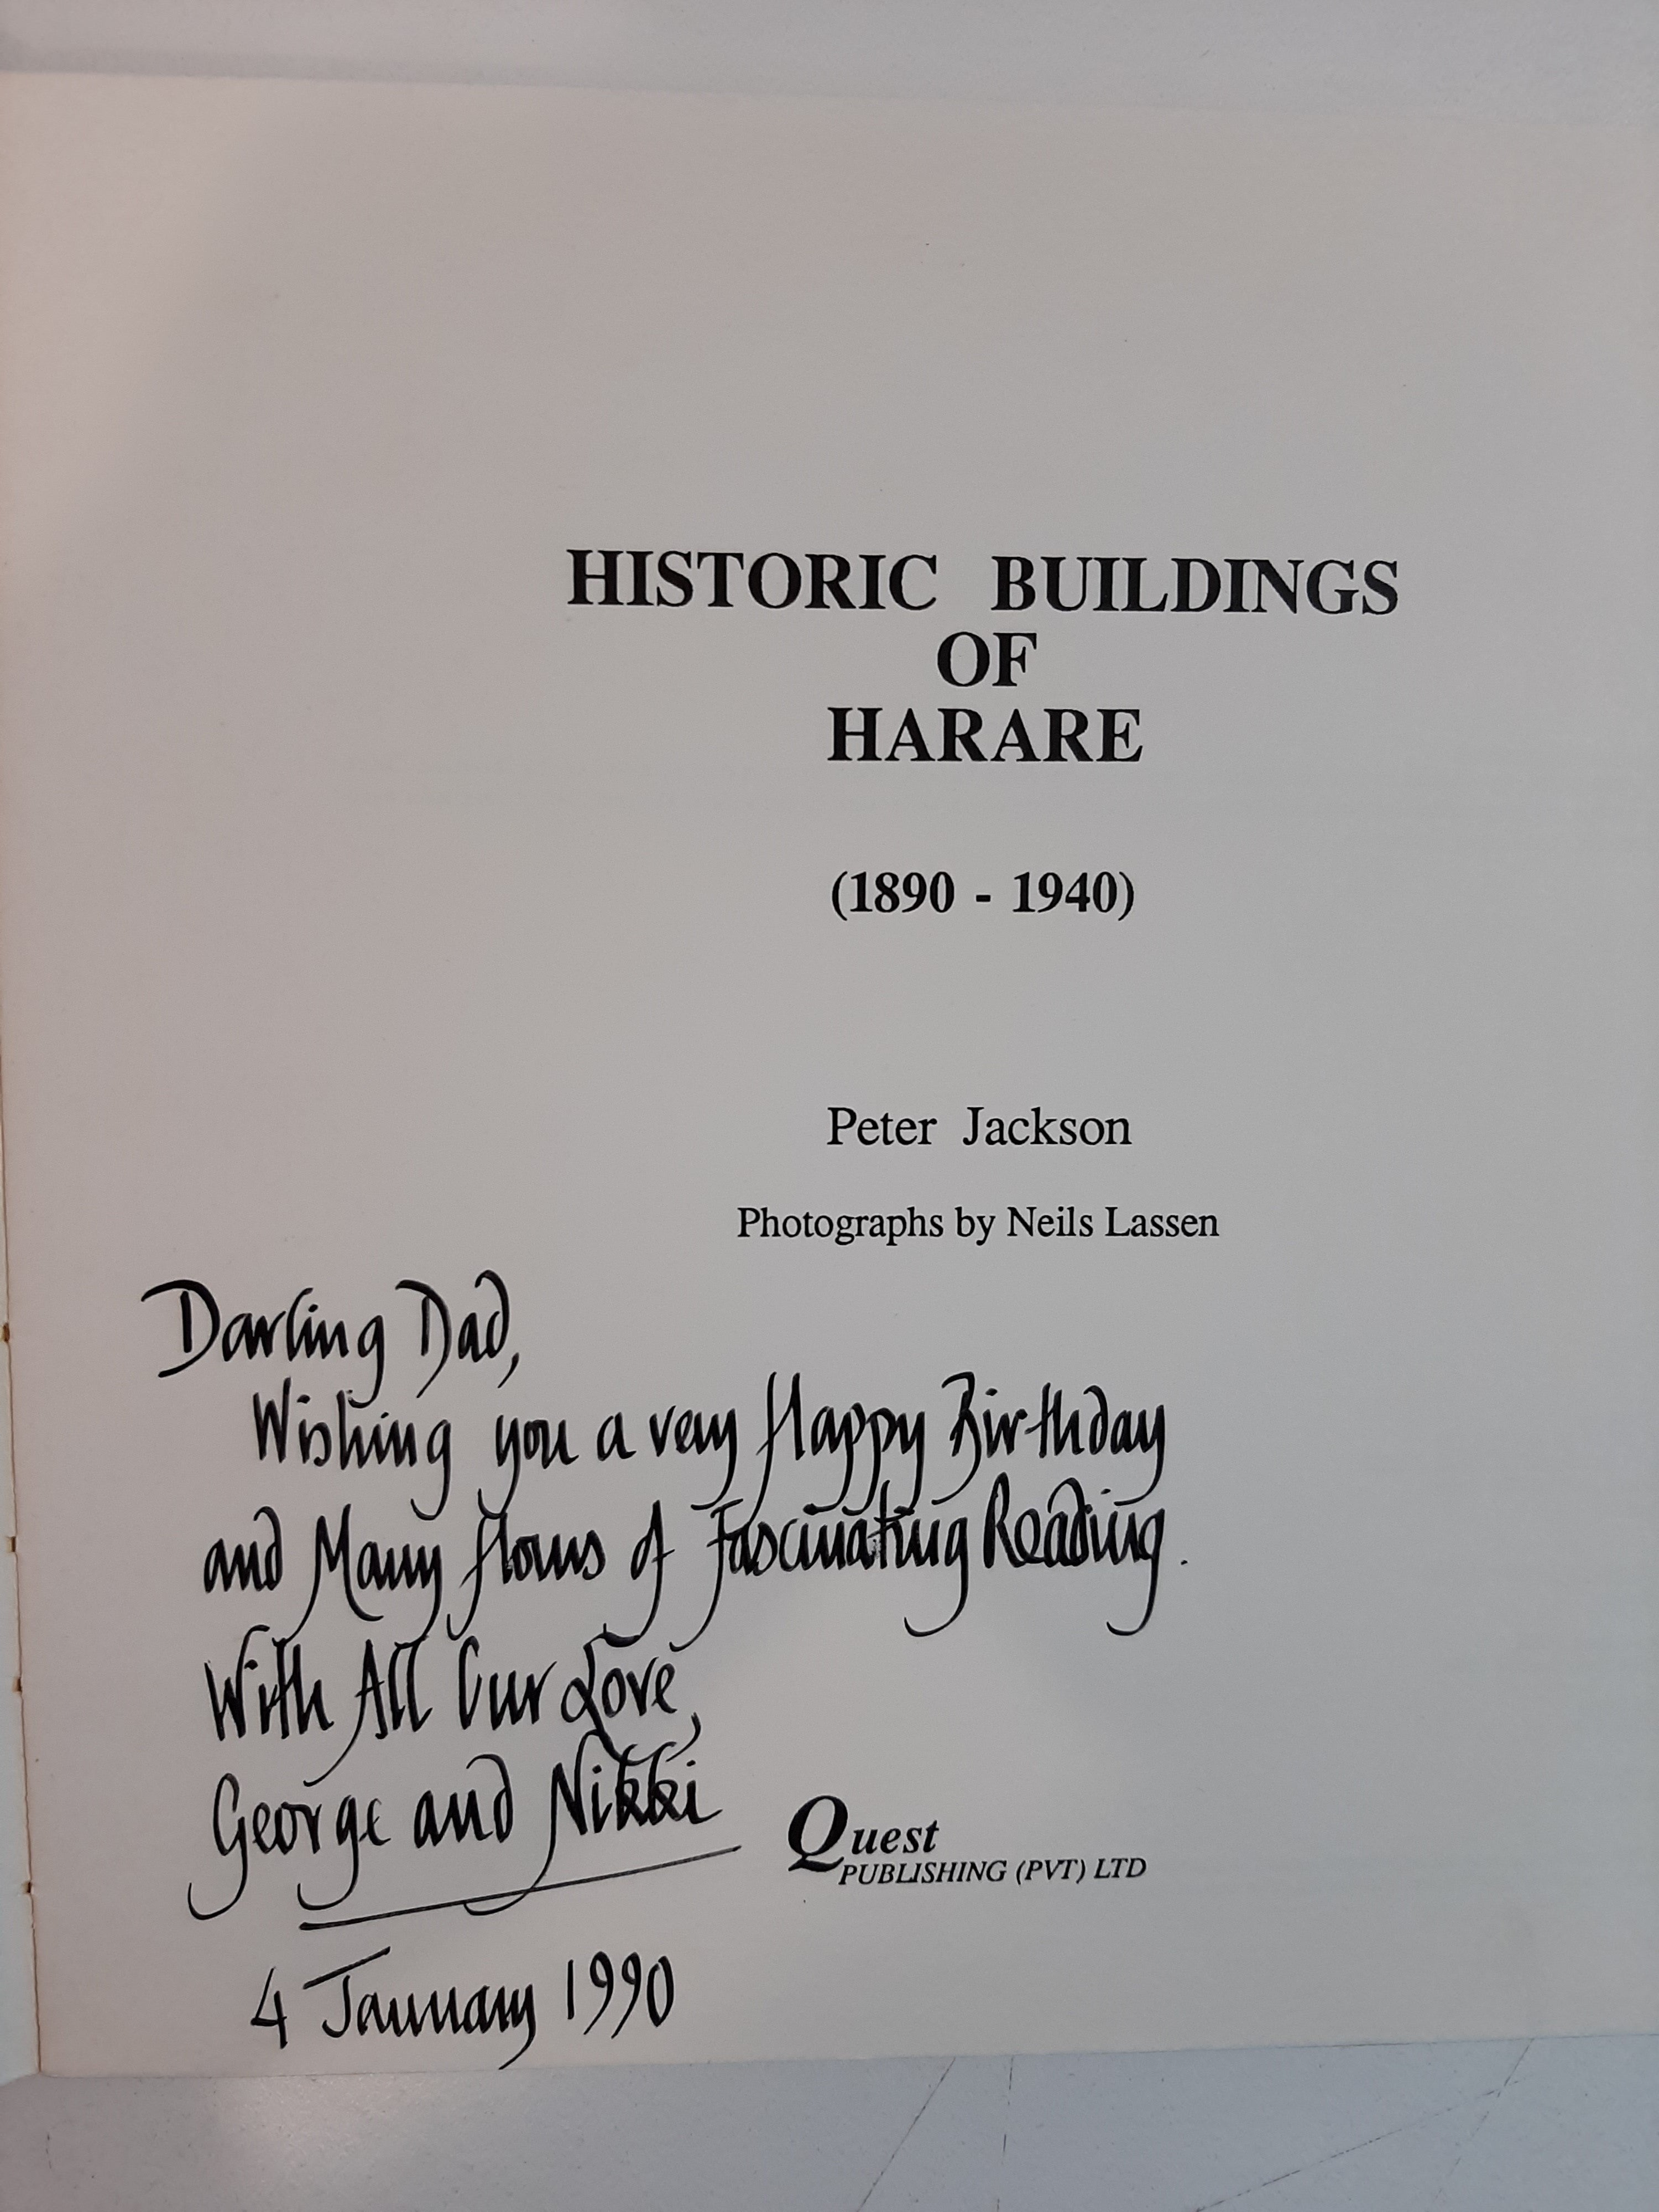 HISTORIC BUILDINGS
OF
HARARE
(1890 - 1940)
Peter Jackson
Photographs by Neils Lassen
Darling Dad,
Wishing you a very Happy Birthday
and Many Hours of Fascinating Reading.
With All Our Love,
George and Nikki
Quest
PUBLISHING (PVT) LTD
4 January 1990